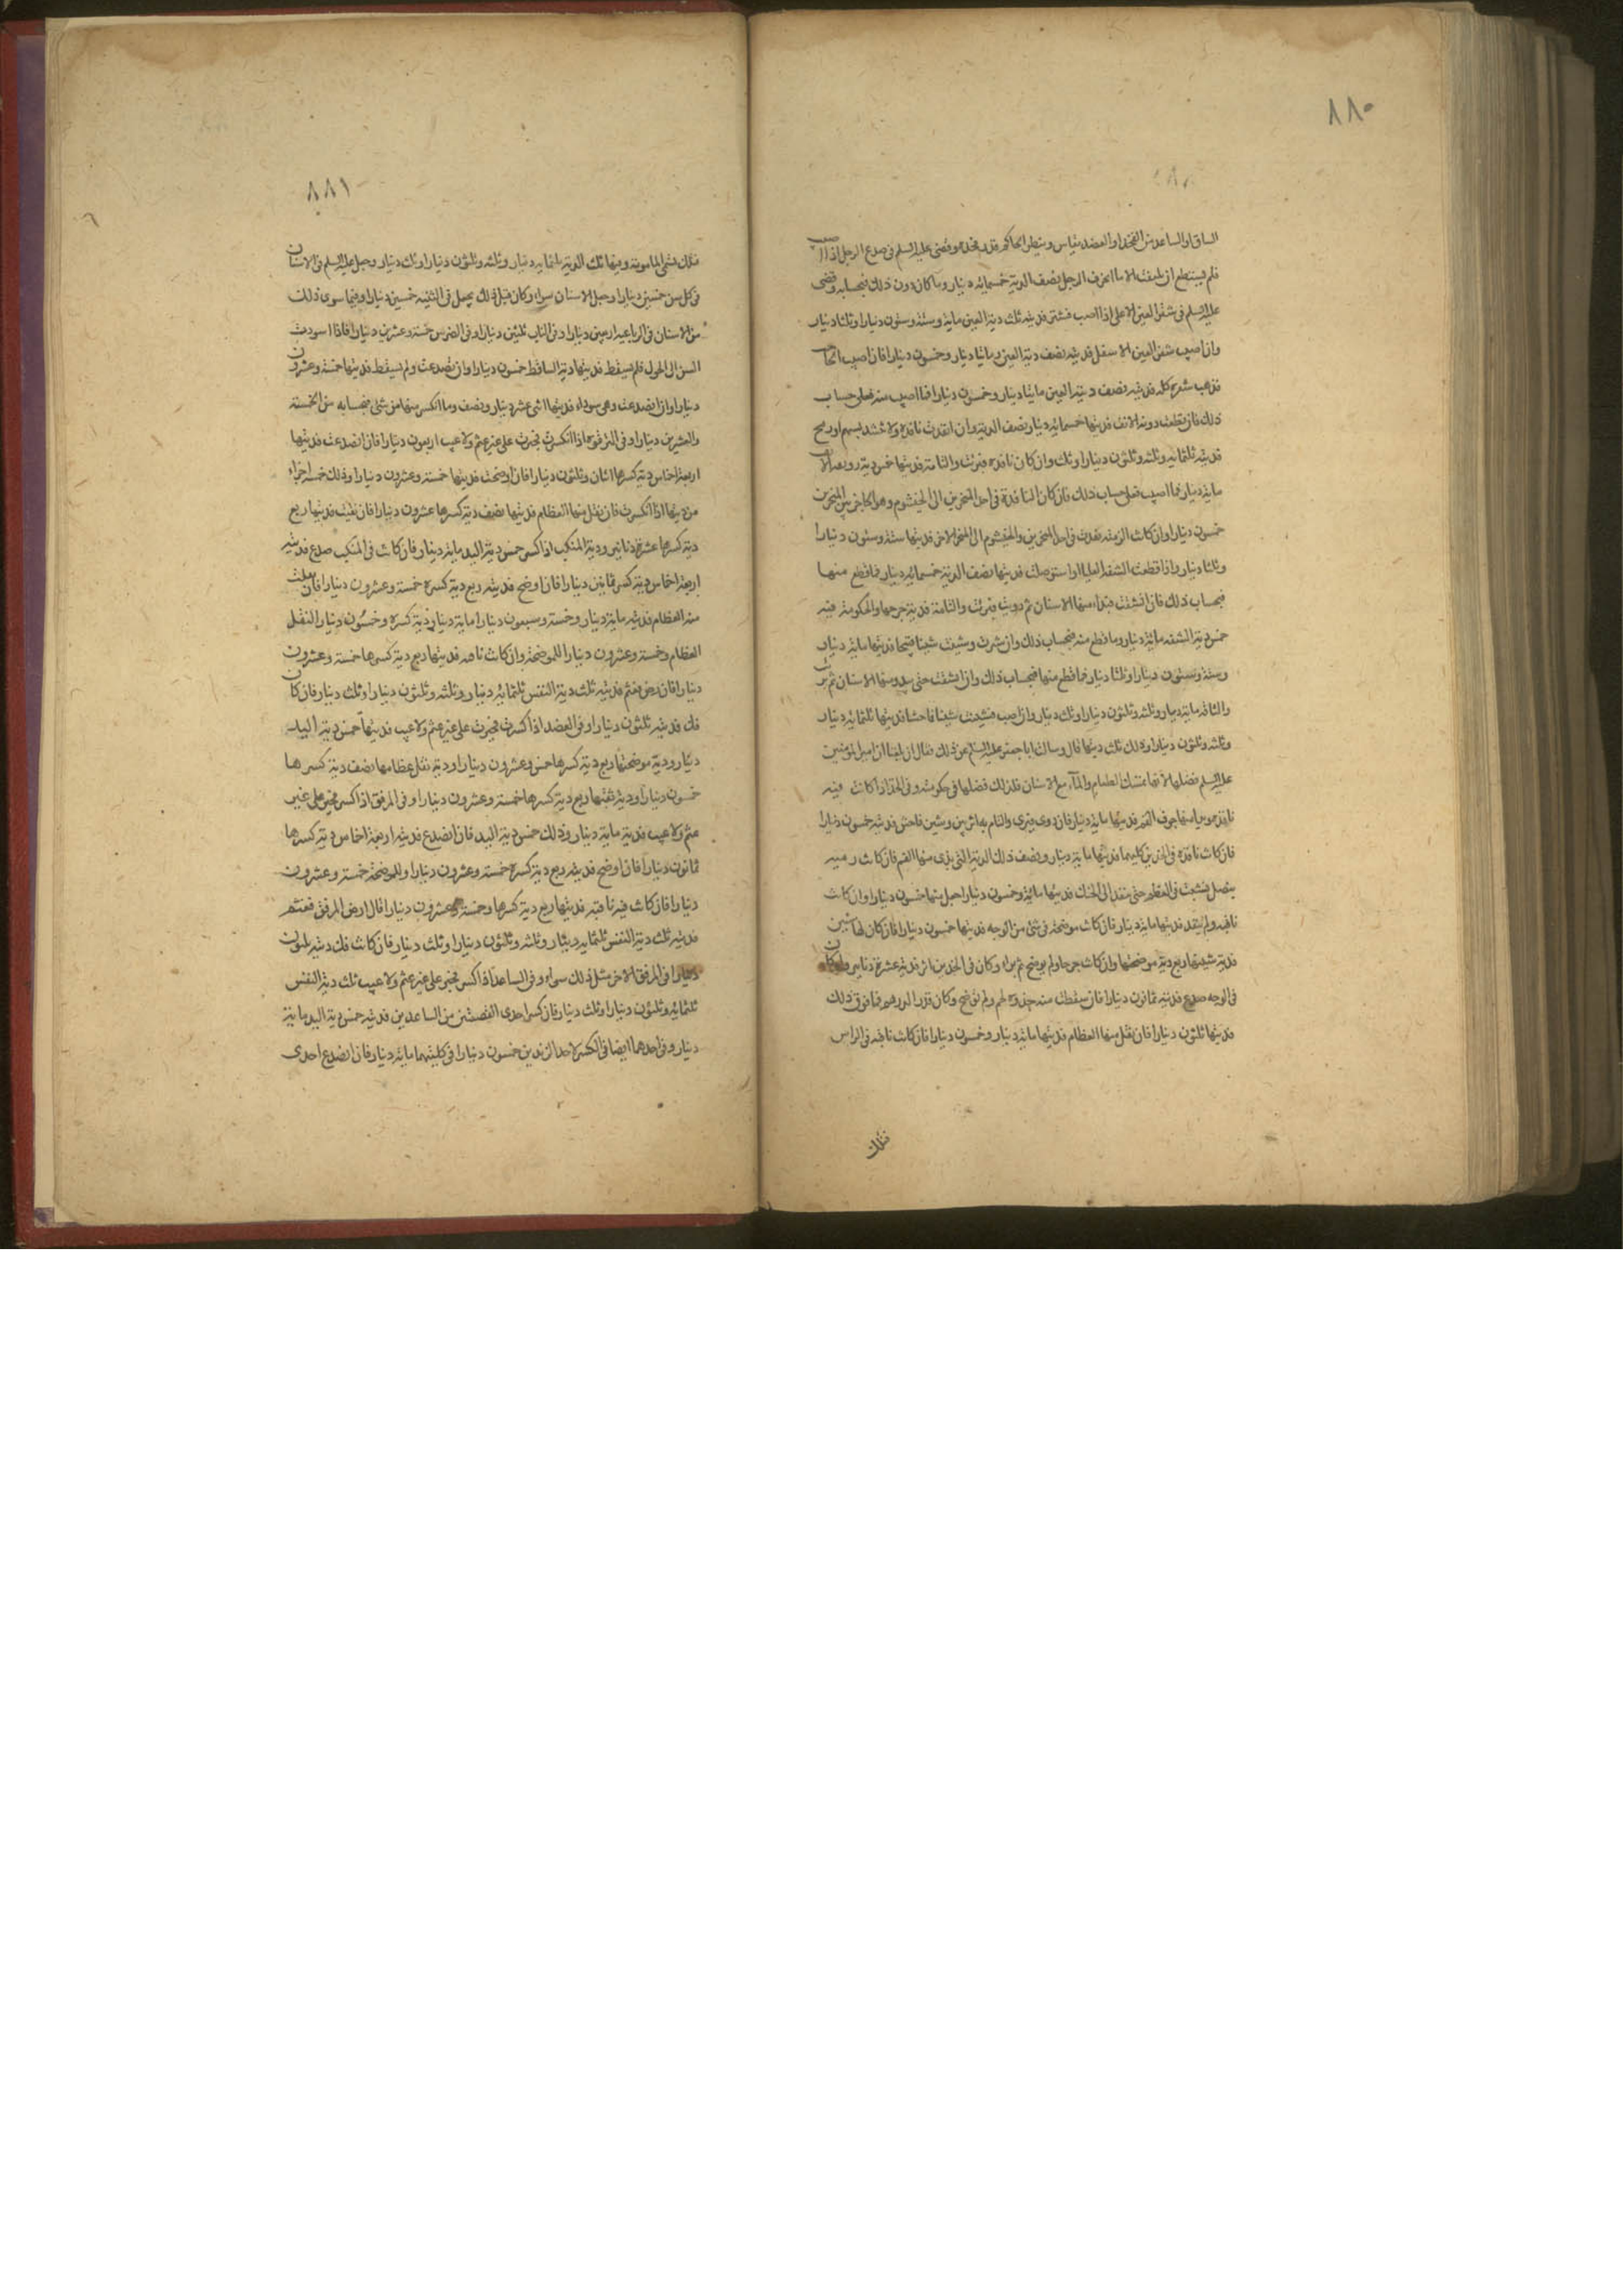 ٨٨٠
الساق او الساعد من الفخذ او العضد يقاس وينظر الحاكم قدر فخذه وقضى عليه السلم فى صدغ الرجل اذا اصيب
فلم يستطع ان يلتفت الا ما انحرف الرجل نصف الدية خمسمائة دينار وما كان دون ذلك فبحسابه وقضى
عليه السلم فى شفر العين الاعلى اذا اصيب فشتر فديته ثلث دية العين ماية وستة وستون دينارا وثلثا دينار
وان اصيب شفر العين الاسفل فديته نصف دية العين مايتا دينار وخمسون دينارا فان اصيب الحاجب
فذهب شعره كله فديته نصف دية العين مايتا دينار وخمسون دينارا فما اصيب منه فعلى حساب
ذلك فان قطعت روثة الانف فديتها خمسمائة دينار نصف الدية وان انفذت نافذة لا تنسد بسهم او رمح
فديته ثلثمائة وثلثة وثلثون دينارا وثلث وان كان نافذة فبرئت والتامت فديتها خمس دية روثة الانف
ماية دينار فما اصيب فعلى حساب ذلك فان كان النافذة فى احد المنخرين الى الخيشوم وهو الحاجز بين المنخرين
خمسون دينارا وان كانت الرمية نفذت فى احد المنخرين والخيشوم الى المنخر الاخر فديتها ستة وستون دينارا
وثلثا دينار واذا قطعت الشفة العليا او استوصلت فديتها نصف الدية خمسمائة دينار فما قطع منها
فبحساب ذلك فان انشقت فبدا منها الاسنان ثم دويت فبرئت والتامت فدية جرحها والحكومة فيه
خمس دية الشفة ماية دينار وما قطع منه فبحساب ذلك وان شترت وشينت شينا قبيحا فديتها ماية دينار
وستة وستون دينارا وثلثا دينار فما قطع منها فبحساب ذلك وان انشقت حتى يبدو منها الاسنان ثم برئت
والتامت ماية دينار وثلثة وثلثون دينارا وثلث دينار وان اصيب فشينت شينا فاحشا فديتها ثلثمائة دينار
وثلثة وثلثون دينارا وذلك ثلث ديتها قال وسالت ابا جعفر عليه السلم عن ذلك فقال ان بلغنا ان امير المؤمنين
عليه السلم فضلها لانها تمسك الطعام والمآء مع الاسنان فلذلك فضلها فى حكومته وفى الخد اذا كانت فيه
نافذة ويرى منها جوف الفم فديتها ماية دينار فان دوى فبرى والتام وبه اثر بين وشين فاحش فديته خمسون دينارا
فان كانت نافذة فى الخدين كليهما فديتها ماية دينار ونصف ذلك الدية التى يرى منها الفم فان كانت رمية
بنصل ينشب فى العظم حتى ينفذ الى الحنك فديتها ماية وخمسون دينارا جعل منها خمسون دينارا وان كانت
ناقبة ولم ينفذ فديتها ماية دينار فان كانت موضحة فى شئ من الوجه فديتها خمسون دينارا فان كان لها شين
فدية شينها ربع دية موضحتها وان كانت جرحا ولم يوضح ثم براء وكان فى الخدين اثر فديته عشرة دنانير وان كان
فى الوجه صدع فديته ثمانون دينارا فان سقطت منه جذوة لحم ولم توضح وكان قدر الدرهم فما فوق ذلك
فديتها ثلثون دينارا فان نقل منها العظام فديتها ماية دينار وخمسون دينارا فان كانت ناقبة فى الراس
فتلك
٨٨١
فتلك تسمى المامومة وديتها ثلث الدية ثلثمائة دينار وثلثة وثلثون دينارا وثلث دينار وجعل عليه السلم فى الاسنان
فى كل سن خمسين دينارا وجعل الاسنان سواء وكان قبل ذلك يجعل فى الثنية خمسين دينارا وفيما سوى ذلك
من الاسنان فى الرباعية اربعين دينارا وفى الناب ثلثين دينارا وفى الضرس خمسة وعشرين دينارا فاذا اسودت
السن الى الحول فلم يسقط فديتها دية الساقط خمسون دينارا وان تصدعت ولم يسقط فديتها خمسة وعشرون
دينارا وان انصدعت وهى سوداء فديتها اثنى عشر دينار ونصف وما انكسر منها من شئ فبحسابه من الخمسة
والعشرين دينارا وفى الترقوة اذا انكسرت فجبرت على غير عثم ولا عيب اربعون دينارا فان انصدعت فديتها
اربعة اخماس دية كسرها اثنان وثلثون دينارا فان اوضحت فديتها خمسة وعشرون دينارا وذلك خمسة اجزاء
من ديتها اذا انكسرت فان نقل منها العظام فديتها نصف دية كسرها عشرون دينارا فان نقبت فديتها ربع
دية كسرها عشرة دنانير ودية المنكب اذا كسر خمس دية اليد ماية دينار فان كانت فى المنكب صدع فديته
اربعة اخماس دية كسره ثمانين دينارا فان اوضح فديته ربع دية كسره خمسة وعشرون دينارا فان نقلت
منه العظام فديته ماية دينار وخمسة وسبعون دينارا ماية دينار دية كسره وخمسون دينارا لنقل
العظام وخمسة وعشرون دينارا للموضحة وان كانت ناقبه فديتها ربع دية كسرها خمسة وعشرون
دينارا فان رض فعثم فديته ثلث دية النفس ثلثمائة دينار وثلثة وثلثون دينارا وثلث دينار فان كان
فك فديته ثلثون دينارا وفى العضد اذا كسرت فجبرت على غير عثم ولا عيب فديتها خمس دية اليد
دينار ودية موضحتها ربع دية كسرها خمس وعشرون دينارا ودية نقل عظامها نصف دية كسرها
خمسون دينارا ودية نقبها ربع دية كسرها خمسة وعشرون دينارا وفى المرفق اذا كسر فجبر على غير
عثم ولا عيب فديته ماية دينار وذلك خمس دية اليد فان انصدع فديته اربعة اخماس دية كسرها
ثمانون دينارا فان اوضح فديته ربع دية كسره خمسة وعشرون دينارا وللموضحة خمسة وعشرون
دينارا فان كانت فيه ناقبه فديتها ربع دية كسرها وخمسة وعشرون دينارا قال ارض المرفق فعثم
فديته ثلث دية النفس ثلثمائة دينار وثلثة وثلثون دينارا وثلث دينار فان كانت فك ديته ثلثون
دينارا فى المرفق الاخر مثل ذلك سواء وفى الساعد اذا كسر فجبر على غير عثم ولا عيب ثلث دية النفس
ثلثمائة وثلثون دينارا وثلث دينار فان كسر احدى القصبتين من الساعدين فديته خمس دية اليد ماية
دينار وفى احدهما ايضا فى الكسر لاحد الزندين خمسون دينارا فى كليتهما ماية دينار فان انصدع احدى